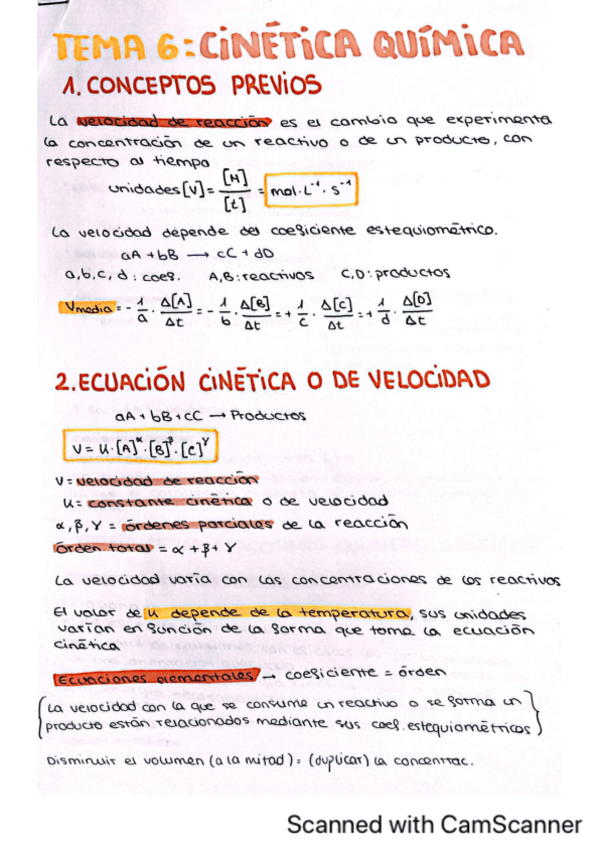 TEMA 6: CINÉTICA QUÍMICA
1. CONCEPTOS PREVIOS
La velocidad de reacción es el cambio que experimenta
la concentración de un reactivo o de un producto, con
respecto al tiempo
unidades [V] = [M] / [t] = mol·L⁻¹·s⁻¹
La velocidad depende del coeficiente estequiométrico.
aA + bB → cC + dD
a, b, c, d : coef. A, B: reactivos C, D: productos
Vmedia = - 1/a · Δ[A]/Δt = - 1/b · Δ[B]/Δt = + 1/c · Δ[C]/Δt = + 1/d · Δ[D]/Δt
2. ECUACIÓN CINÉTICA O DE VELOCIDAD
aA + bB + cC → Productos
V = K·[A]^α·[B]^β·[C]^γ
V = velocidad de reacción
K = constante cinética o de velocidad
α, β, γ = órdenes parciales de la reacción
Orden total = α + β + γ
La velocidad varía con las concentraciones de los reactivos
El valor de K depende de la temperatura, sus unidades
varían en función de la forma que toma la ecuación
cinética
Ecuaciones elementales → coeficiente = órden
(La velocidad con la que se consume un reactivo o se forma un
producto están relacionados mediante sus coef. estequiométricos)
Disminuir el volumen (a la mitad) = (duplicar) la concentrac.
Scanned with CamScanner